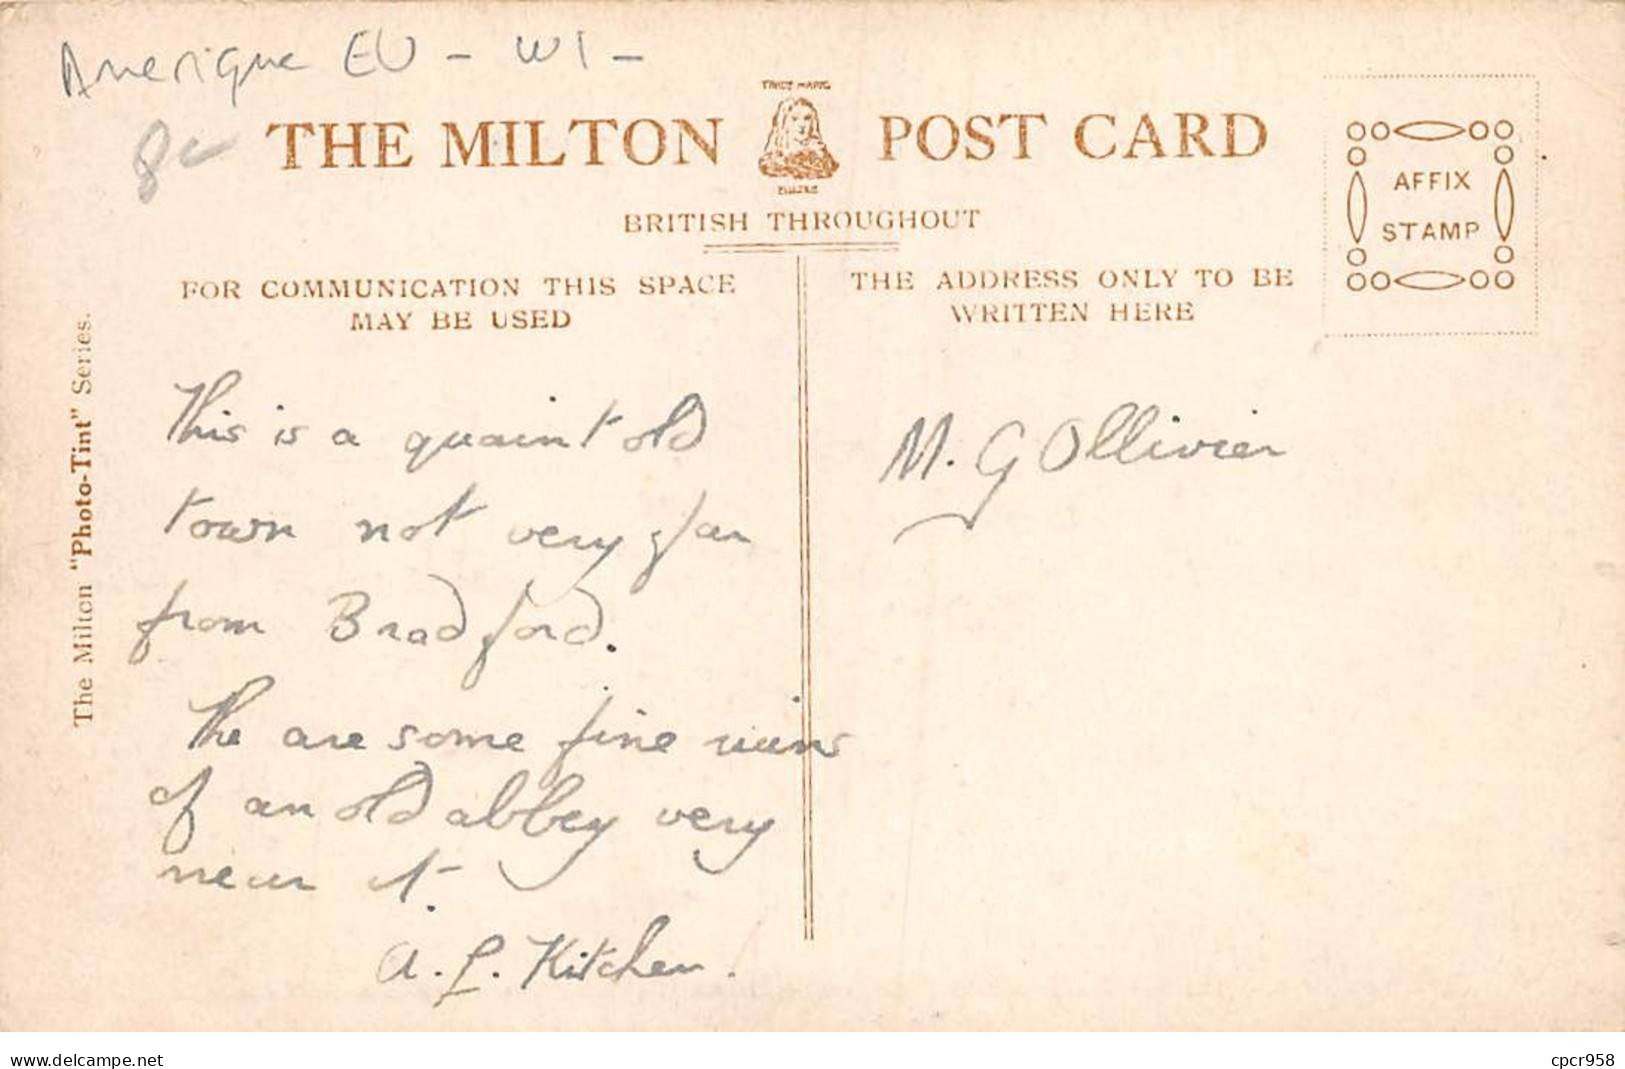 Amerique EU - WI -
8€
TRADE MARK
THE MILTON POST CARD
BRITISH THROUGHOUT
FOR COMMUNICATION THIS SPACE
MAY BE USED
THE ADDRESS ONLY TO BE
WRITTEN HERE
AFFIX
STAMP
The Milton "Photo-Tint" Series.
This is a quaint old
town not very far
from Bradford.
The are some fine ruins
of an old abbey very
near it.
A. L. Kitchen.
M. G Ollivier
www.delcampe.net
cpcr958